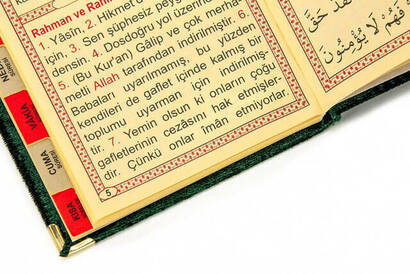 Rahman ve Rah
1. Yâsîn. 2. Hikmet d
için, 3. Sen şüphesiz peyg
densin. 4. Dosdoğru yol üzerin
5. (Bu Kur'an) Gâlip ve çok merha
metli Allah tarafından indirilmiştir. 6.
Babaları uyarılmamış, bu yüzden
kendileri de gaflet içinde kalmış bir
toplumu uyarman için indirilmiş-
tir. 7. Yemin olsun ki onların çoğu
gafletlerinin cezasını hak etmişler-
dir. Çünkü onlar îmân etmiyorlar.
5
فَهُمْ لَا يُؤْمِنُونَ
VÂKIA
SÛRESİ
CUMA
SÛRESİ
KISA